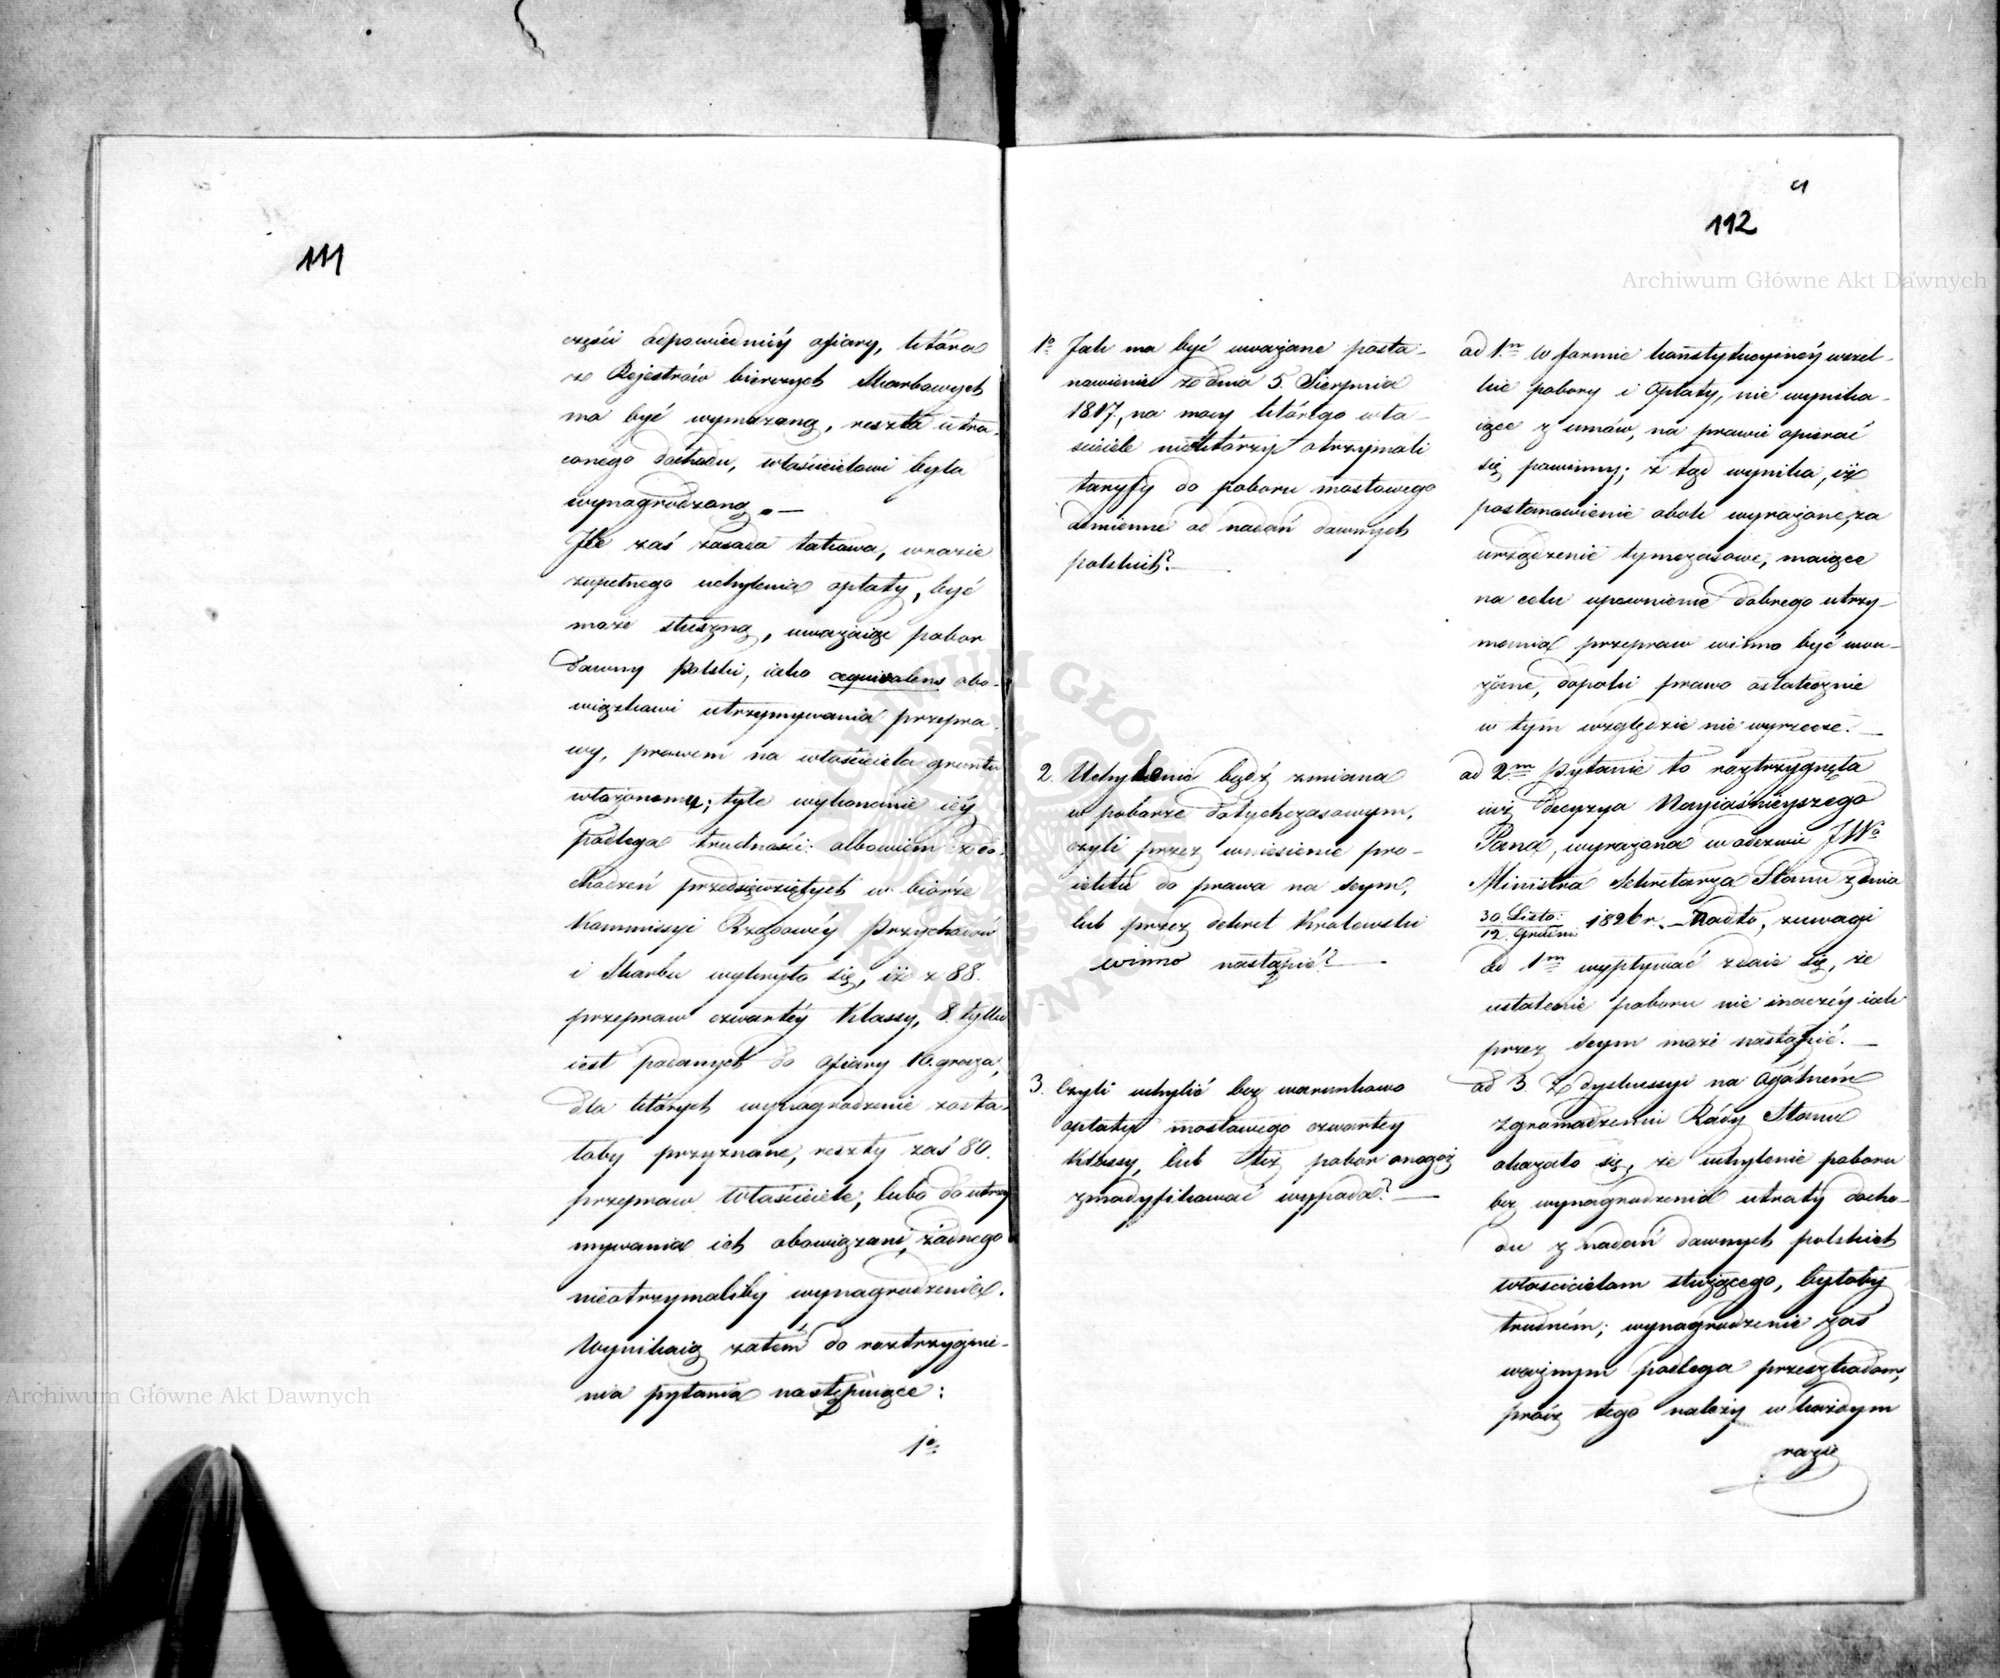 111
części odpowiedniéy ofiary, która
ze Rejestrów bierczych Skarbowych
ma być wymazaną, reszta utra-
conego dochodu, właścicielowi była
wynagrodzoną. —
Ile zaś zasada takowa, wrazie
zupełnego uchylenia opłaty, być
może słuszną, uważaiąc pobór
dawny polski, iako aequivalens obo-
wiązkowi utrzymywania przepra-
wy, prawem na właściciela gruntu
włożonemu; tyle wykonanie iéy
podlega trudności: albowiem z do-
chodzeń przedsięwziętych w biórze
Kommissyi Rządowéy Przychodów
i Skarbu wykryło się, iż z 88.
przepraw czwartéy Klassy, 8. tylko
iest podanych do ofiary 10. grosza,
dla których wynagrodzenie zosta-
łoby przyznane, reszty zaś 80.
przepraw właściciele, lubo do utrzy-
mywania ich obowiązani, żadnego
nieotrzymaliby wynagrodzenia.
Wynikaią zatém do roztrzygnie-
nia pytania następuiące:
1o
112
1o Jak ma być uważane posta-
nowienie ze dnia 5. Sierpnia
1817, na mocy którego wła-
ściciele niektórzy otrzymali
taryfy do poboru mostowego
odmienne od nadań dawnych
polskich? —
2. Uchylenie bądź zmiana
w poborze dotychczasowym,
czyli przez wniesienie pro-
iektu do prawa na Seym,
lub przez dekret Królewski
winno nastąpić? —
3. Czyli uchylić bez warunkowo
opłatę mostowego czwartey
Klassy, lub też pobór onegoż
zmodyfikować wypada? —
ad 1m W formie konstytucyinéy wszel-
kie pobory i opłaty, nie wynika-
iące z umów, na prawie opierać
się powinny; z tąd wynika, iż
postanowienie obok wyrażone, za
urządzenie tymczasowe, maiące
na celu upewnienie dobrego utrzy-
mania przepraw winno być uwa-
żane, dopóki prawo ostatecznie
w tym względzie nie wyrzecze. —
ad 2m Pytanie to roztrzygnęła
iuż decyzya Nayiaśnieyszego
Pana, wyrażona w odezwie JWo
Ministra Sekretarza Stanu z dnia
30. Listo: / 12. Grudni: 1826 r. — Nadto, z uwagi
ad 1m wypływać zdaie się, że
ustalenie poboru nie inaczéy iak
przez Seym może nastąpić. —
ad 3 Z dyskussyi na Ogólném
Zgromadzeniu Rady Stanu
okazało się, że uchylenie poboru
bez wynagrodzenia utraty docho-
du z nadań dawnych polskich
właścicielom służącego, byłoby
trudném; wynagrodzenie zaś
ważnym podlega przeszkodom,
prócz tego należy w każdym
razie
Archiwum Główne Akt Dawnych
Archiwum Główne Akt Dawnych